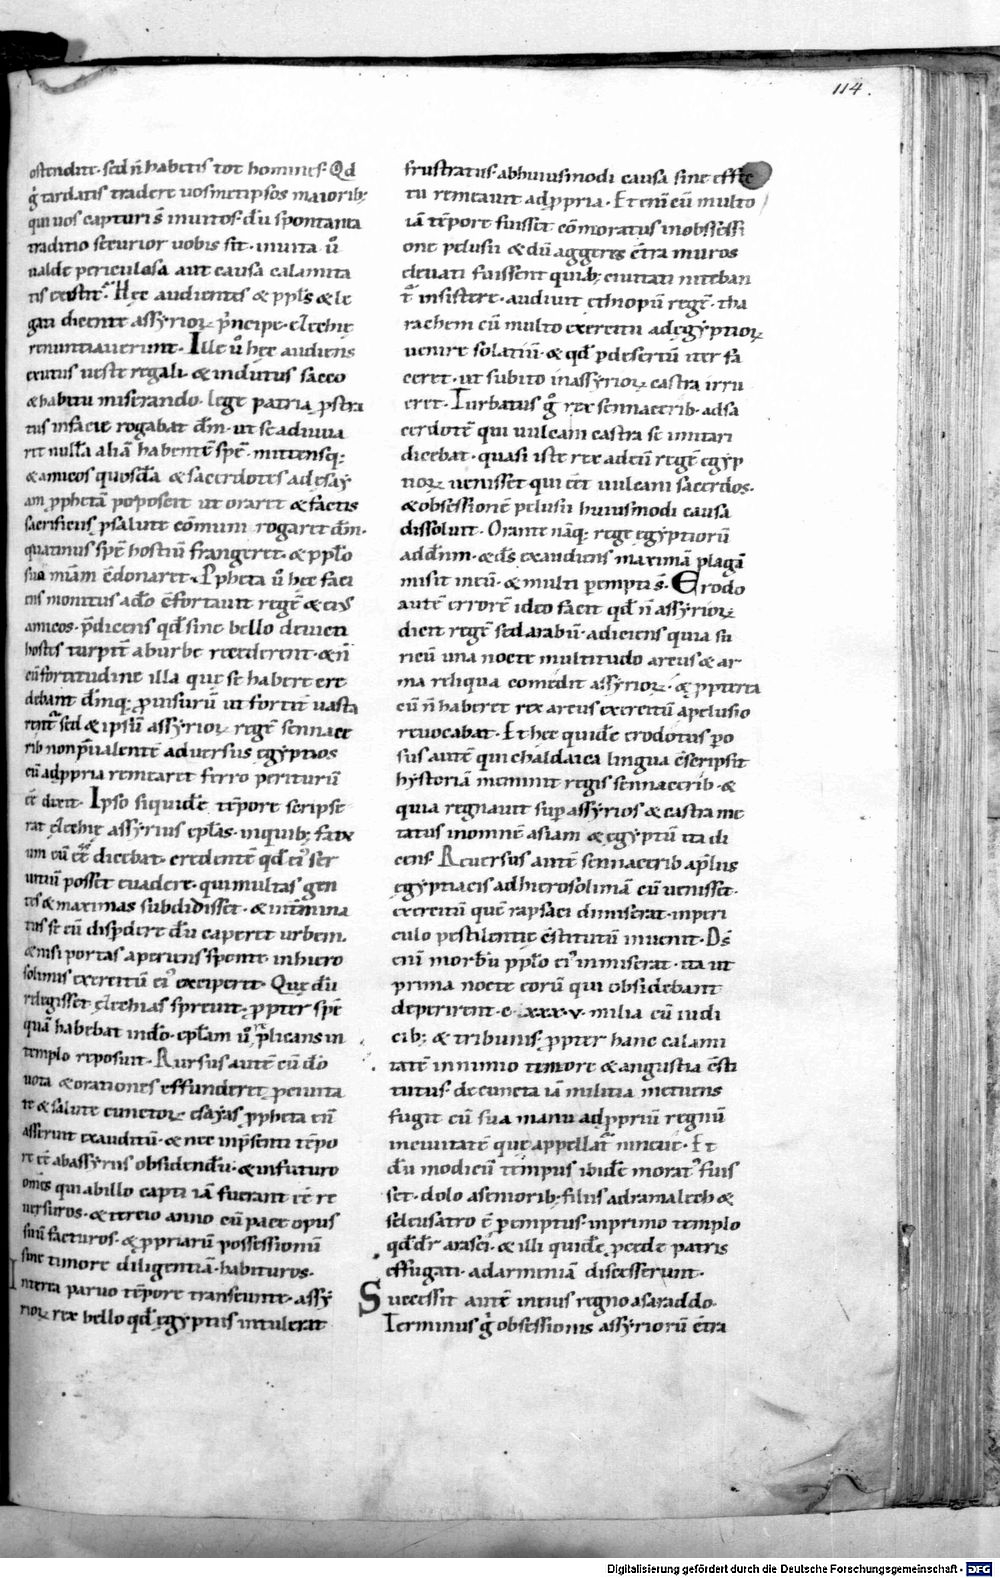 114.
ostendite. sed n̄ habetis tot homines. Qd
g̊ tardatis tradere uosmetipsos maiorib;
qui uos capturi s̄ inuitos. dū spontanea
traditio securior uobis sit. inuita ū
ualde periculosa aut causa calamita
tis existit. Hęc audientes & ppl's & le
gati dicente assyrioꝝ p̄ncipe. ezechię
renuntiauerunt. Ille ū hęc audiens
exutus ueste regali. & indutus sacco
& habitu miserando. lege patria ꝓstra
tus in facie rogabat dm̄. ut se adiuua
ret nullā aliā habentē spē. mittensq;
& amicos quosdā & sacerdotes ad esay
am ꝓphetā poposcit ut oraret & factis
sacrificiis ꝓ salute cōmuni rogaret dm̄.
quatinus spē hostiū frangeret. & pplo
suo miam c̄donaret. Ꝓpheta ū hęc faci
ens monitus a do c̄fortauit regē & eius
amicos. p̄dicens qd sine bello deuicti
hostes turpit̄ ab urbe recederent. & n̄
cū fortitudine illa que se habere cre
debant. dīnq; ꝓuisurū ut fortit̄ uasta
rent̄. sed & ipsū assyrioꝝ regē sennace
rib non p̄ualentē aduersus egyptios
cū ad ꝓpria remearet ferro periturū
cē dixit. Ipso siquidē tēpore scripse
rat ezechię assyrius eplas. inquib; fatu
um eū cē dicebat. credentē qd ei' ser
uitiū posset euadere. qui multas gen
tes & maximas subdidisset. & int̄mina
tus se eū disꝑdere dū caperet urbem.
& nisi portas aperiens sponte. in hiero
solimis exercitū ei' exciperet. Que dū
relegisset ezechias spreuit. ꝓpter spē
quā habebat in do. eplam ū plicans in
templo reposuit. Rursus autē cū do
uota & orationes effunderet ꝓ ciuita
te & salute cunctoꝝ. esayas ꝓpheta eū
asseruit exauditū. & nec in p̄senti tēpo
re cē ab assyriis obsidendū. & in futuro
omēs qui ab illo capti iā fuerant cē re
uersuros. & tercio anno cū pace opus
suū facturos. & ꝓpriarū possessionū
sine timore diligentiā habituros.
Interea paruo tēpore transeunte. assy
rioꝝ rex bello qd egyptiis intulerat
frustratus. ab huiusmodi causa sine effec
tu remeauit ad ꝓpria. Et enī cū multo
iā tēpore fuisset cōmoratus in obsessi
one pelusii & dū aggeres c̄tra muros
eleuati fuissent quib; ciuitati niteban
t̄ insistere. audiuit ethiopū regē. tha
rachem cū multo exercitu ad egyptioꝝ
uenire solatiū. & qd ꝑ desertū iter fa
ceret. ut subito in assyrioꝝ castra irru
eret. Turbatus g̊ rex sennacerib. ad sa
cerdotē qui uulcani castra se imitari
dicebat. quasi iste rex ad eū regē egyp
tioꝝ uenisset qui cēt uulcani sacerdos.
& obsessionē pelusii huiusmodi causa
dissoluit. Orante nāq; rege egyptiorū
ad dnm. & ds̄ exaudiens maximā plagā
misit in eū. & multi ꝑempti s̄. Erodo
autē errorē ideo facit qd n̄ assyrioꝝ
dicit regē sed arabū. adiciens quia su
ricū una nocte multitudo arcus & ar
ma reliqua comedit assyrioꝝ. & ꝓpterea
cū n̄ haberet rex arcus exercitū a pelusio
reuocabat. Et hęc quidē erodotus. ꝑo
sus autē qui chaldaica lingua c̄scripsit
hystoriā meminit regis sennacerib. &
quia regnauit suꝑ assyrios & castra me
tatus in omnē asiam & egyptū ita di
cens. Reuersus autē sennacerib a plus
egyptiacis ad hierosolimā cū uenisset.
exercitū quē rapsaci dimiserat. in peri
culo pestilentię c̄stitutū inuenit. Ds̄
enī morbū pplo ei' inmiserat. ita ut
prima nocte eorū qui obsidebant
deperirent. c. lxxx.v. milia cū iudi
cib; & tribunis. ꝓpter hanc calami
tatē in nimio timore & angustia c̄sti
tutus. de cuncta iā militia metuens
fugit cū sua manu ad ꝓpriū regnū
in ciuitatē quę appellat̄ niniue. Et
dū modicū tempus ibidē morat' fuis
set. dolo a seniorib; filiis adramalech &
seleusatro ē ꝑemptus. in primo templo
qd dr̄ arasci. & illi quidē ꝓ cede patris
effugati. ad armeniā discesserunt.
Successit autē in eius regno asaraddo.
Terminus g̊ obsessionis assyriorū c̄tra
Digitalisierung gefördert durch die Deutsche Forschungsgemeinschaft - DFG